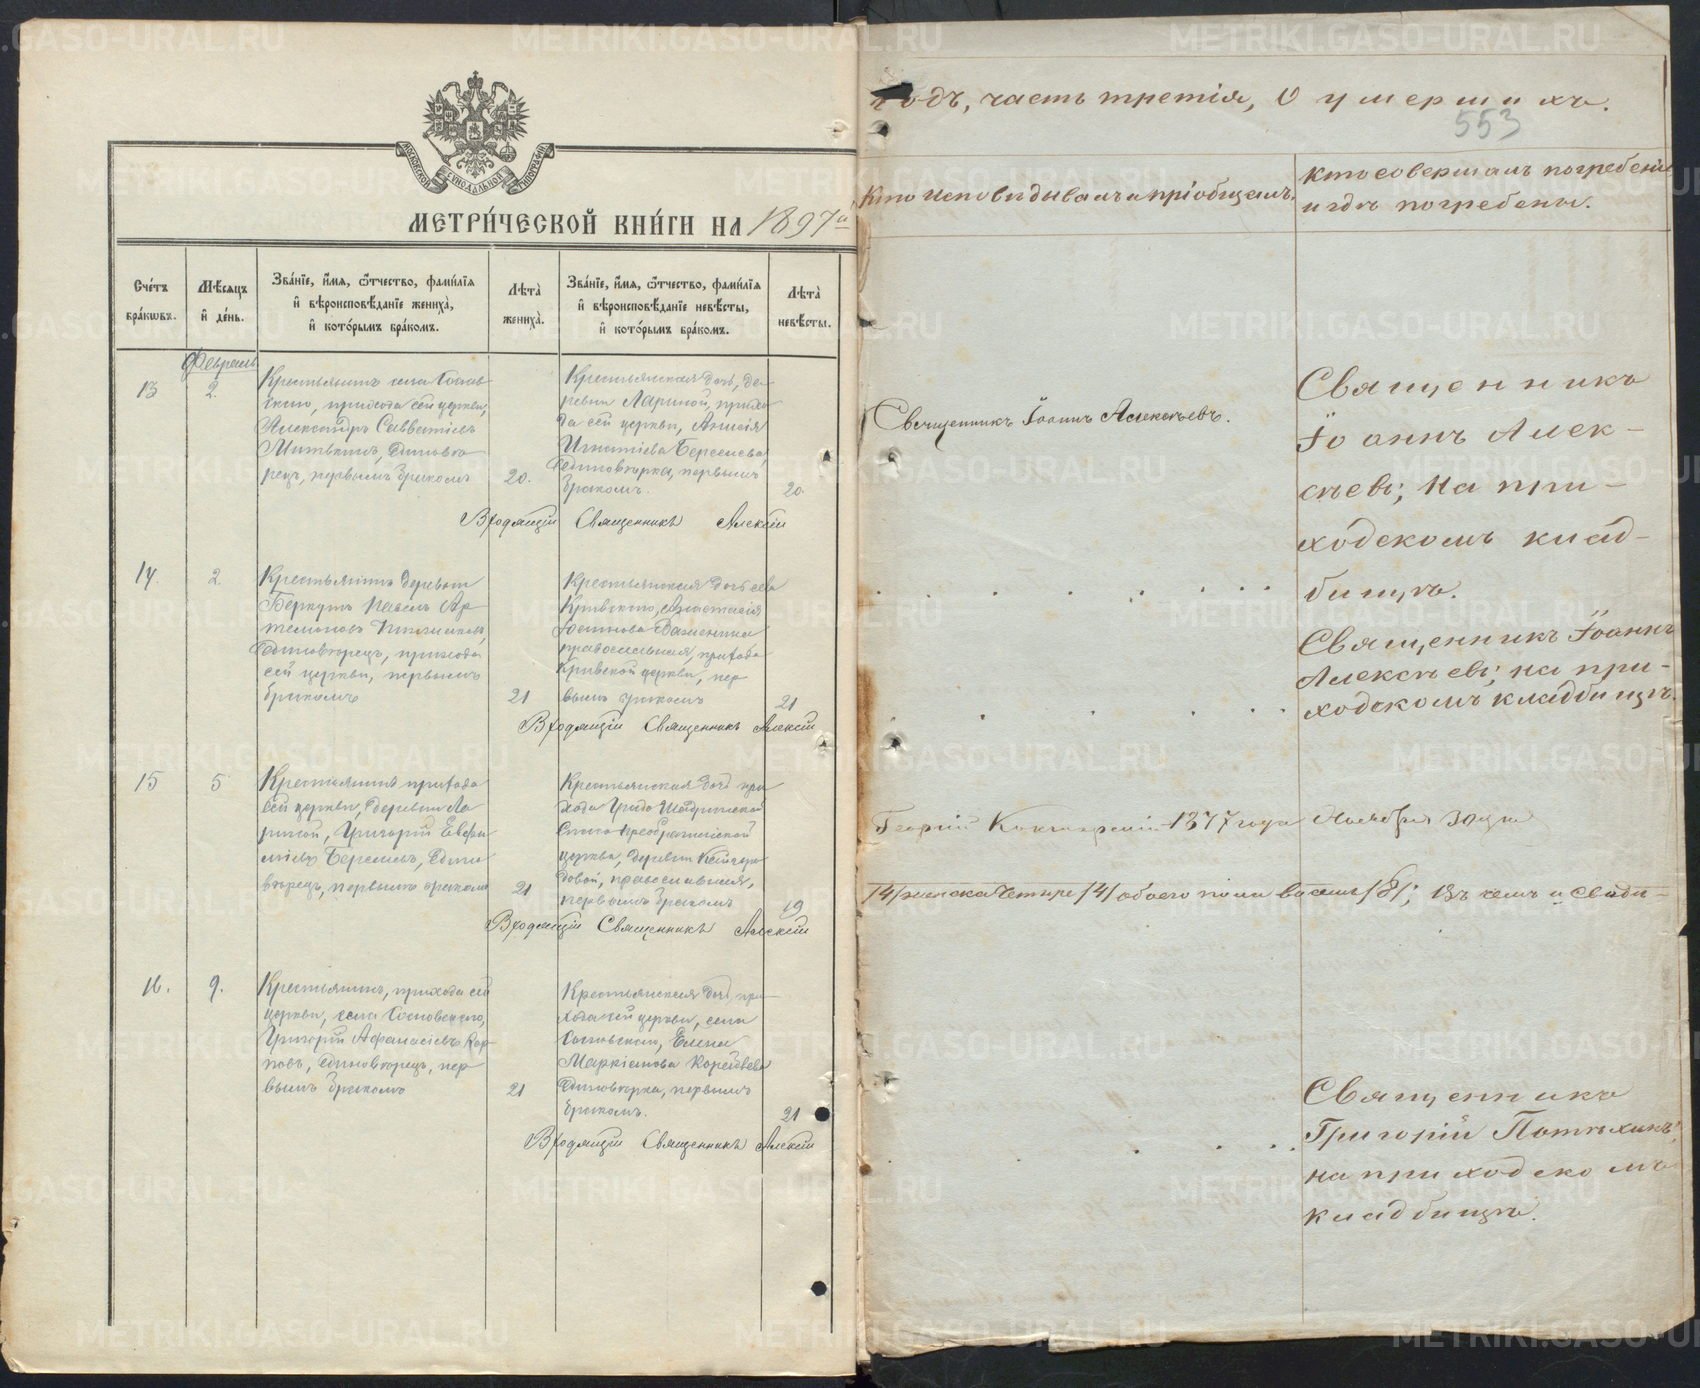 МОСКОВСКОЙ СѴНОДАЛЬНОЙ ТИПОГРАФІИ
МЕТРИ́ЧЕСКОЙ КНИ́ГИ НА 1897й
Сче́тъ бра́кѡвъ.
Мѣ́сяцъ и҆ де́нь.
Зва́нїе, и҆́мѧ, ѻ҆́тчество, фами́лїѧ
и҆ вѣроисповѣ́данїе жениха̀,
и҆ кото́рымъ бра́комъ.
Лѣта̀ жениха̀.
Зва́нїе, и҆́мѧ, ѻ҆́тчество, фами́лїѧ
и҆ вѣроисповѣ́данїе невѣ́сты,
и҆ кото́рымъ бра́комъ.
Лѣта̀ невѣ́сты.
Февраль
13
2.
Крестьянинъ села Соснов
скаго, прихода сей церкви,
Александръ Савватіевъ
Единовѣ
рецъ, первымъ бракомъ
20.
Крестьянская дочь, де
ревни Лариной, прихо
да сей церкви, Анисія
Игнатіева Берсенева,
Единовѣрка, первымъ
бракомъ.
20.
Входящій Священникъ Алексій
14.
2.
Крестьянинъ деревни
Беркутъ Павелъ Ар
темоновъ
Единовѣрецъ, прихода
сей церкви, первымъ
бракомъ
21
Крестьянская дочь села
Кривскаго, Анастасія
православная, прихода
Кривской церкви, пер
вымъ бракомъ
21
Входящій Священникъ Алексій
15
5
Крестьянинъ прихода
сей церкви, деревни Ла
риной, Григорій Евфи
міевъ Берсеневъ, Едино
вѣрецъ, первымъ бракомъ
21
Крестьянская дочь при
хода Градо Шадринской
Спасо Преображенской
церкви, деревни
довой, православная,
первымъ бракомъ
19
Входящій Священникъ Алексій
16.
9.
Крестьянинъ, прихода сей
церкви, села Сосновскаго,
Григорій Афанасіевъ Кар
повъ, единовѣрецъ, пер
вымъ бракомъ
21
Крестьянская дочь, при
хода сей церкви, села
Сосновскаго, Елена
Маркіанова
Единовѣрка, первымъ
бракомъ.
21
Входящій Священникъ Алексій
годъ, часть третія, О умершихъ.
553
Кто исповѣдывалъ и пріобщалъ.
Кто совершалъ погребеніе
и гдѣ погребены.
Священникъ Іоаннъ Алексѣевъ.
Священникъ
Іоаннъ Алек-
сѣевъ; на при-
ходскомъ клад-
бищѣ.
Священникъ Іоаннъ
Алексѣевъ; на при-
ходскомъ кладбищѣ.
Георгій 1877 года Ноября 30 дня
/4/ женска четыре /4/ обоего пола восемь /8/; Въ чемъ и свидѣ-
Священникъ
Григорій Потѣхинъ;
на приходскомъ
кладбищѣ.
METRIKI.GASO-URAL.RU